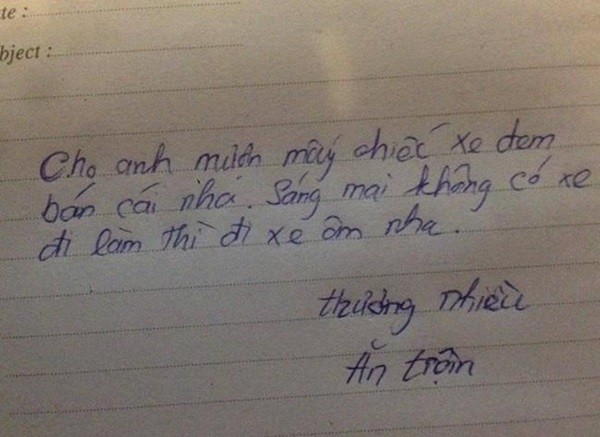 te :
bject :
Cho anh mượn mấy chiếc xe đem
bán cái nha. Sáng mai không có xe
đi làm thì đi xe ôm nha.
thương nhiều
Ăn trộm